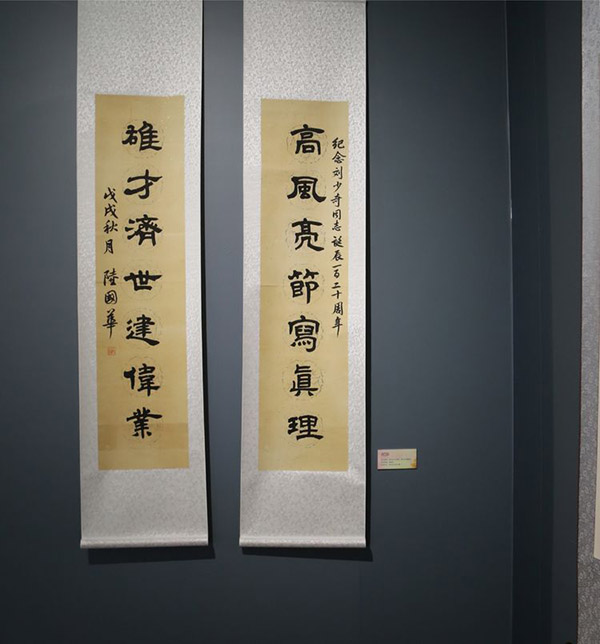 纪念刘少奇同志诞辰一百二十周年
高風亮節寫眞理
雄才濟世建偉業
戊戌秋月 陸國華